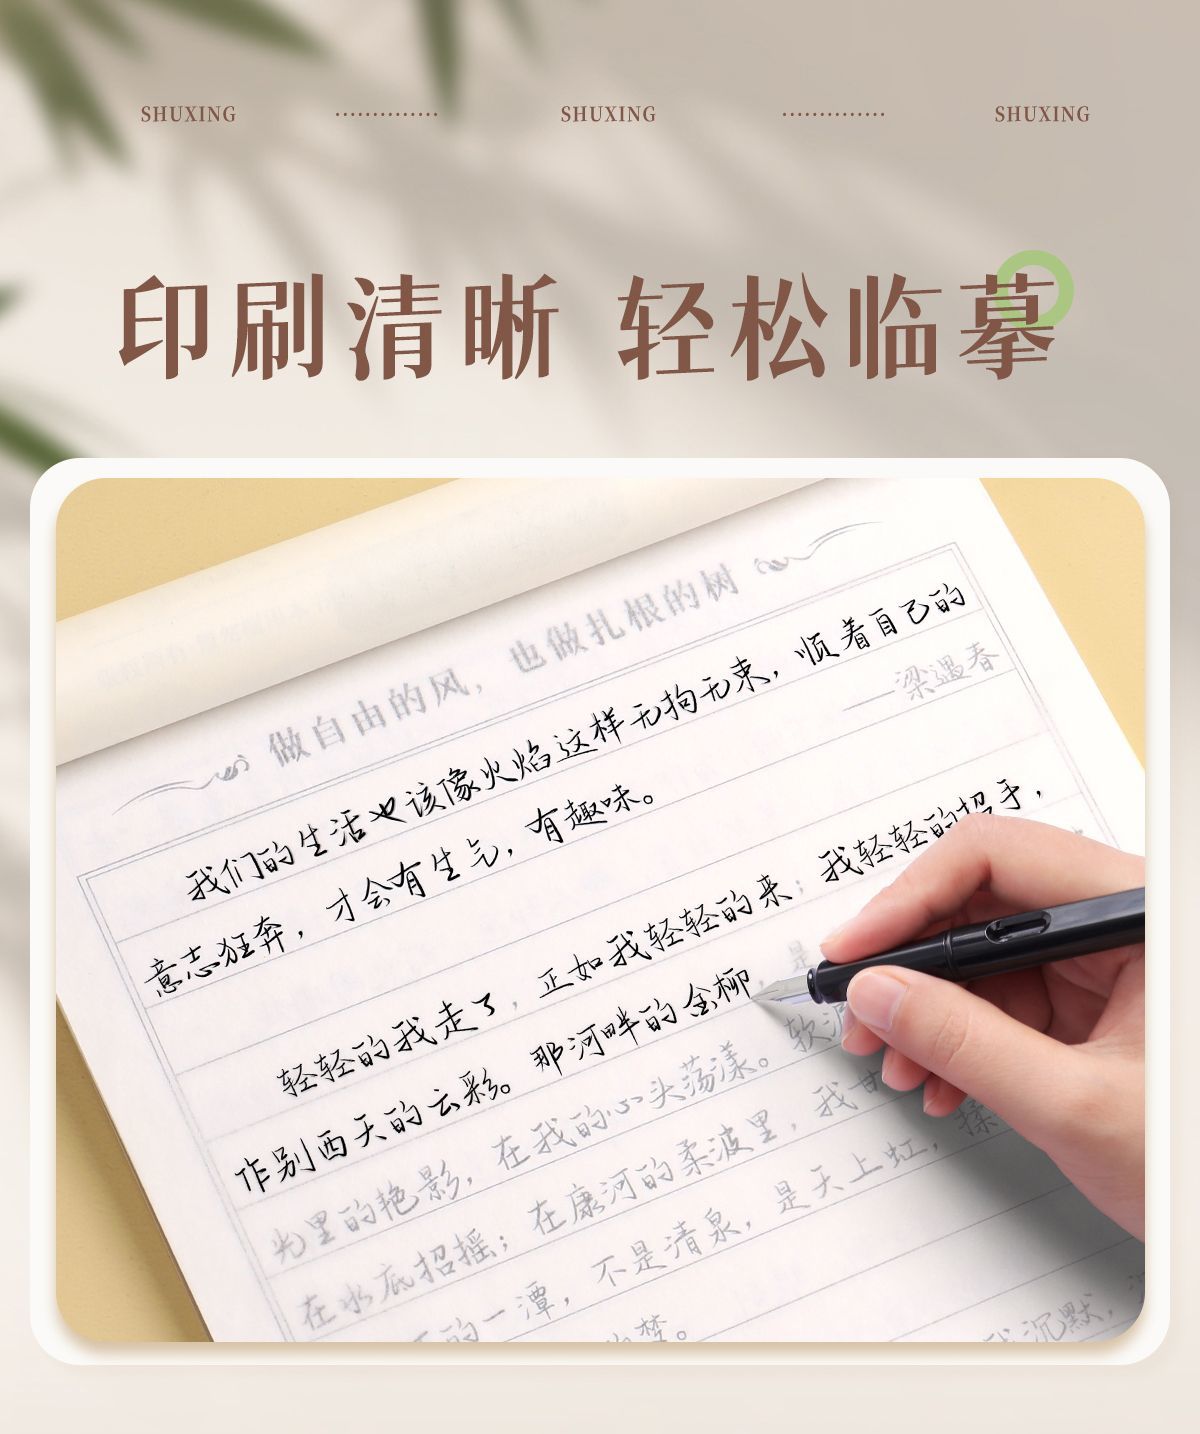 SHUXING SHUXING SHUXING
印刷清晰 轻松临摹
做自由的风，也做扎根的树
我们的生活也该像火焰这样无拘无束，顺着自己的
意志狂奔，才会有生气，有趣味。
——梁遇春
轻轻的我走了，正如我轻轻的来；我轻轻的招手，
作别西天的云彩。那河畔的金柳，是
光里的艳影，在我的心头荡漾。软泥
在水底招摇；在康河的柔波里，我甘
的一潭，不是清泉，是天上虹，揉
梦。
我沉默，